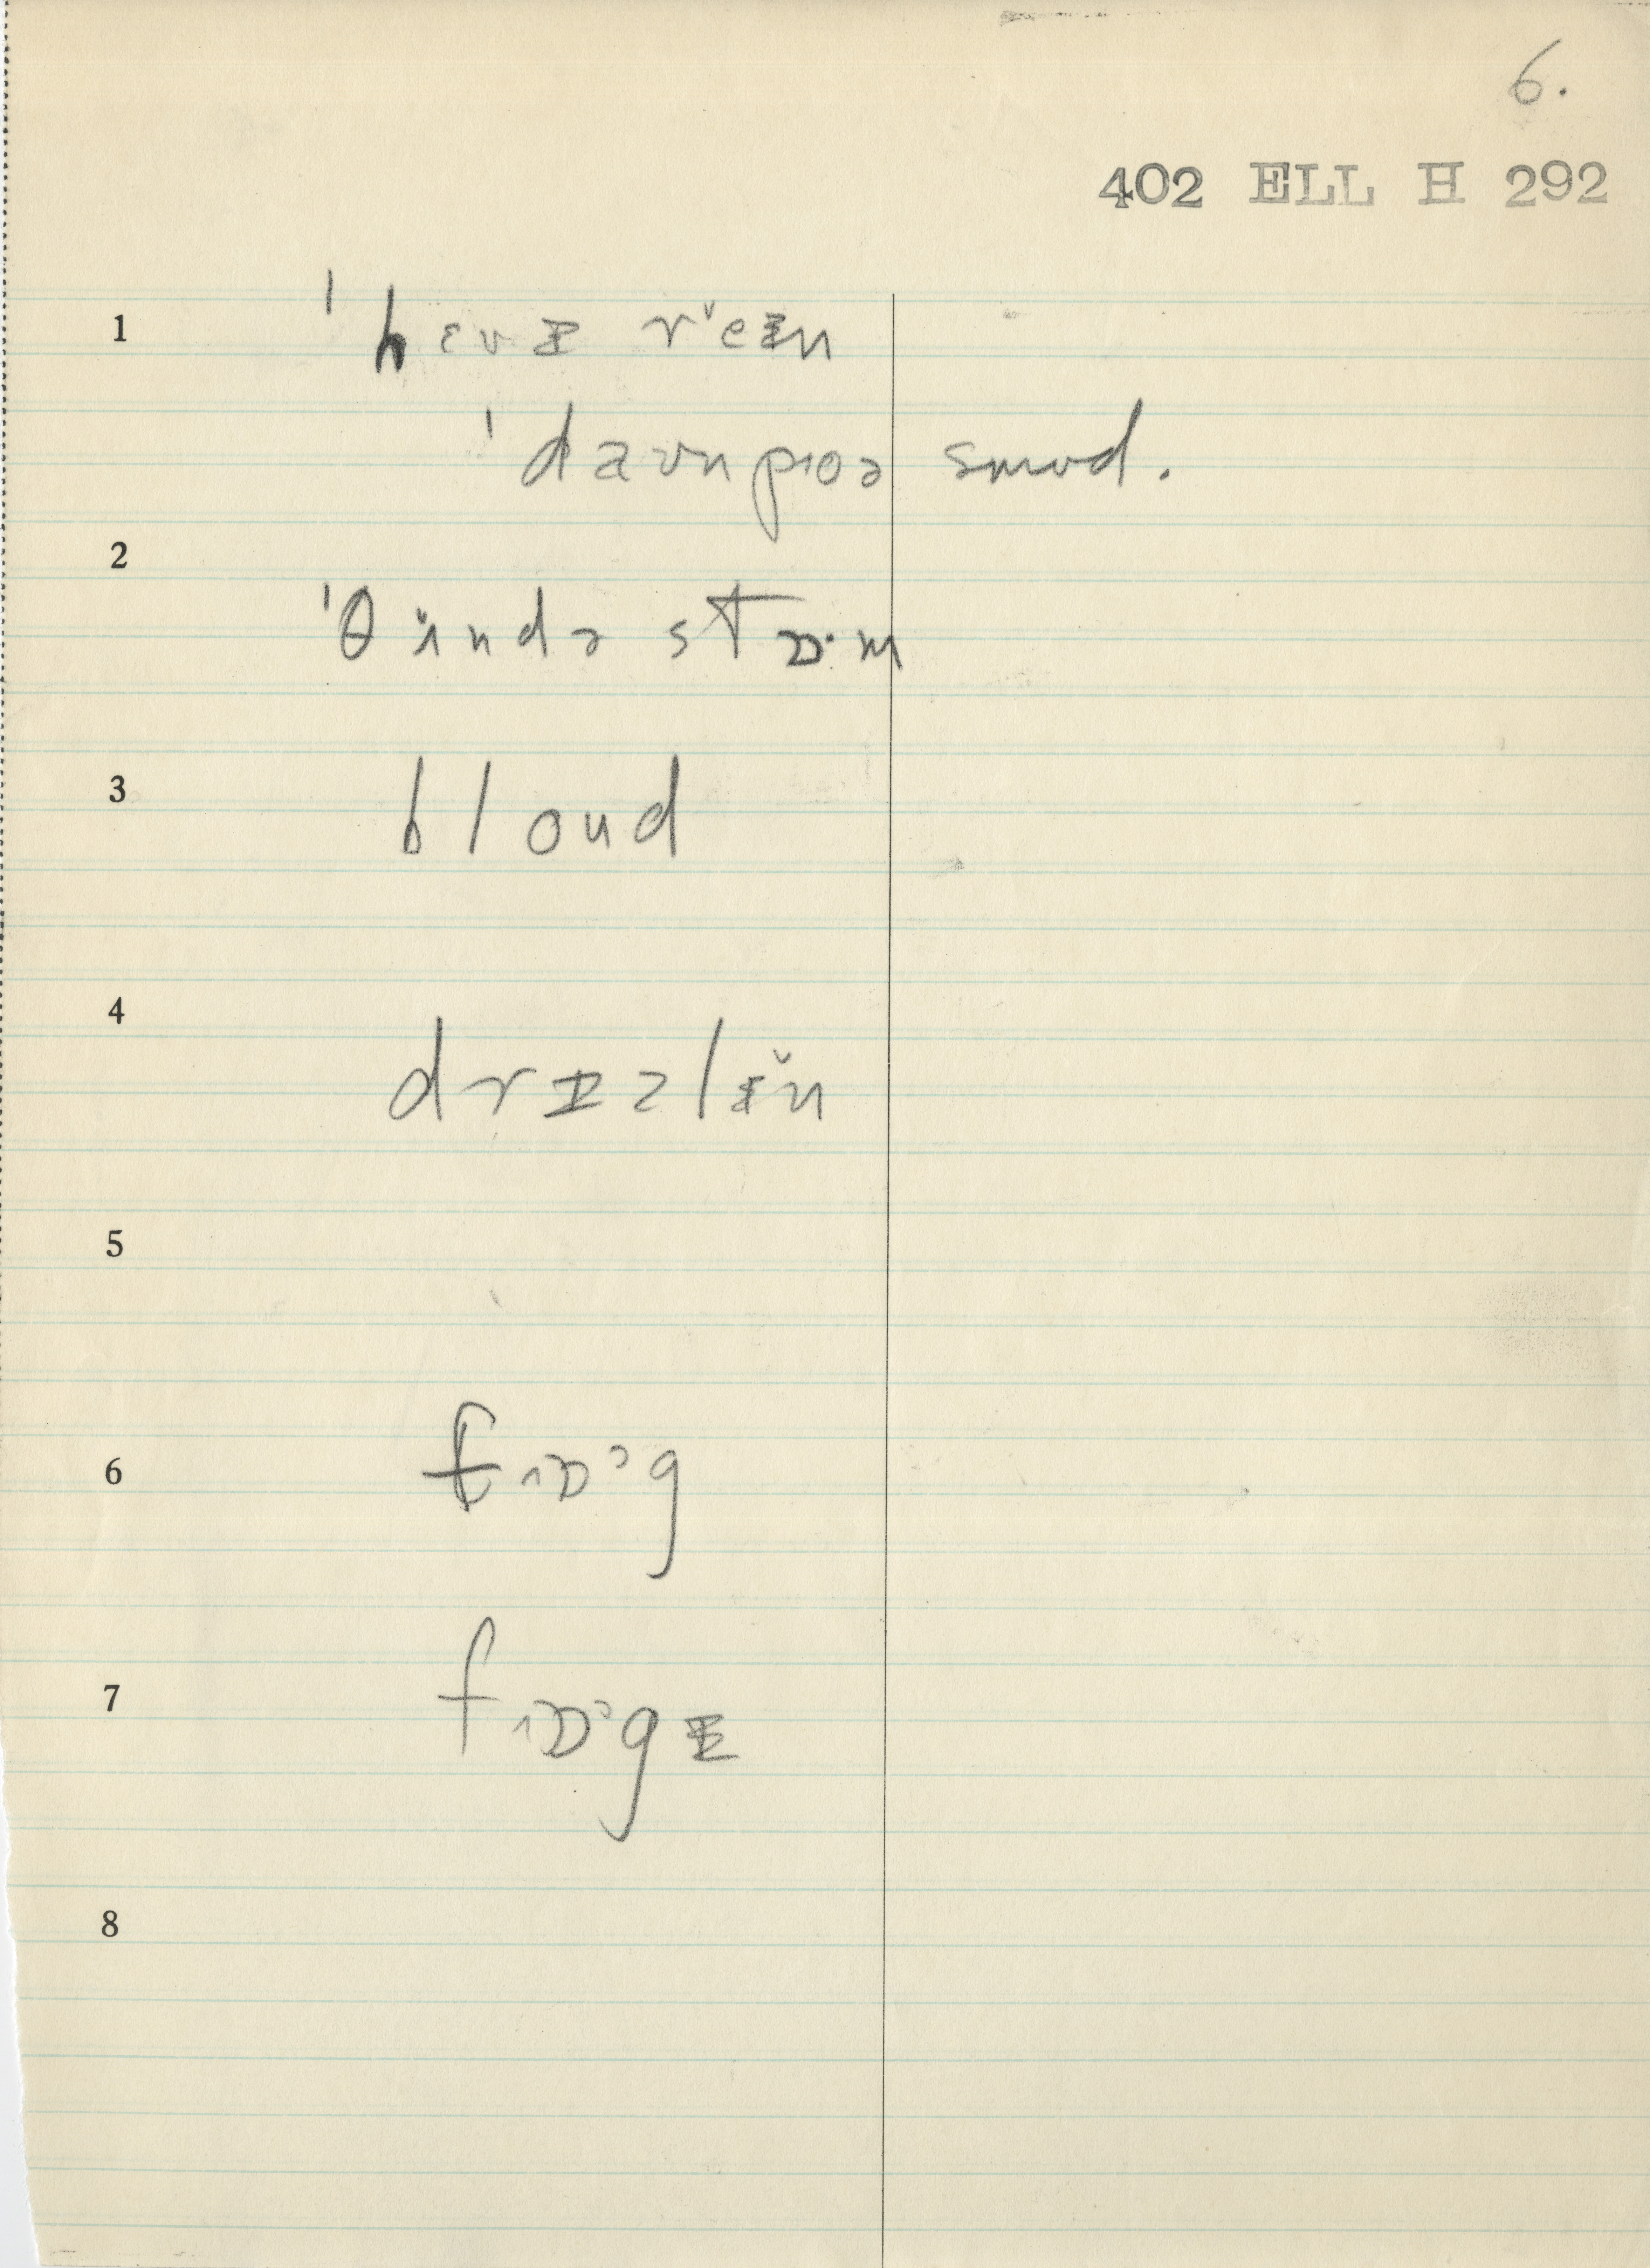 6.
402 ELL H 292
1 ˈhɛvɪ reɪn
ˈdaʊnpɪoə smʊd.
2 ˈθʌndə stɒ·m
3 bloud
4 drɪzlɪ̆n
5
6 fɒˑg
7 fɒˑgɪ
8